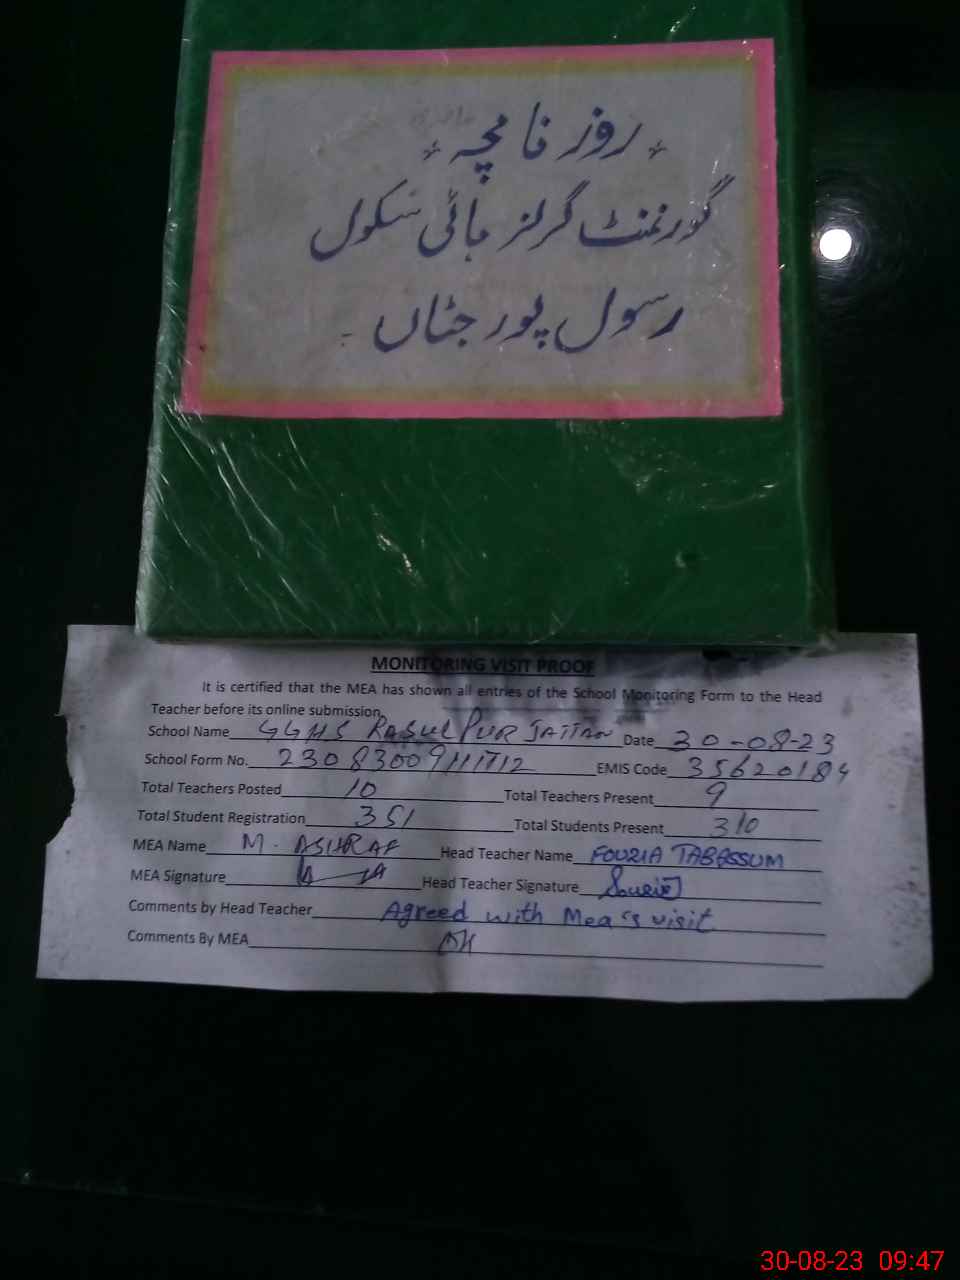 روز نامچہ
گورنمنٹ گرلز ہائی سکول
رسول پور جٹاں
MONITORING VISIT PROOF
It is certified that the MEA has shown all entries of the School Monitoring Form to the Head
Teacher before its online submission.
School Name GGHS RASUL PUR JATTAN Date 30-08-23
School Form No. EMIS Code 35620184
Total Teachers Posted 10 Total Teachers Present 9
Total Student Registration 351 Total Students Present 310
MEA Name M. ASHRAF Head Teacher Name FOUZIA TABASSUM
MEA Signature Head Teacher Signature
Comments by Head Teacher Agreed with Mea's visit
Comments By MEA
30-08-23 09:47